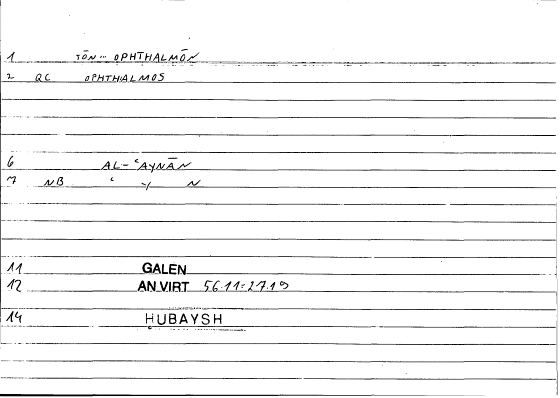 1 TŌN... OPHTHALMŌN
2 QC OPHTHALMOS
6 AL-ʿAYNĀN
7 NB ʿ y N
11 GALEN
12 AN VIRT 56.11=27.19
14 ḤUBAYSH